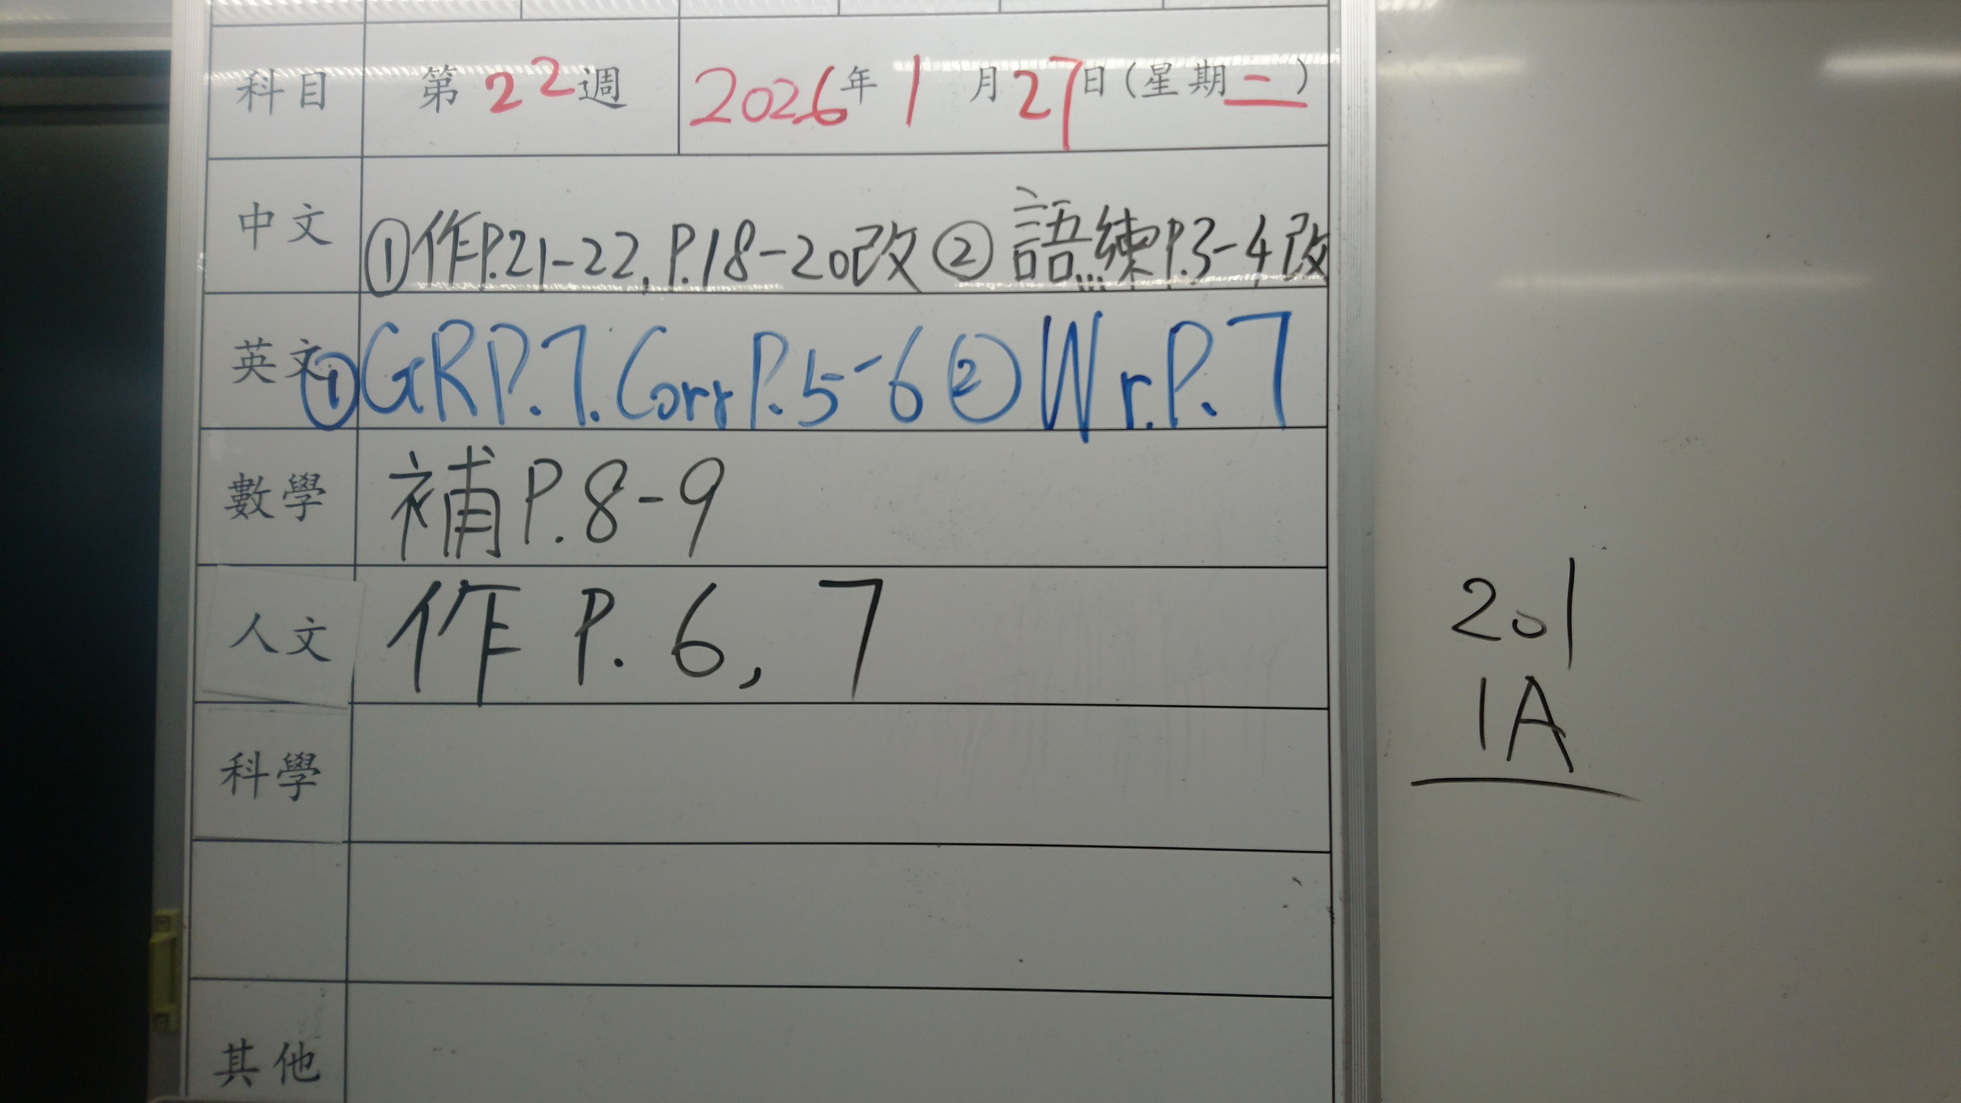 科目 第22週 2026年1月27日(星期二)
中文 ①作P.21-22,P.18-20改②語練P.3-4改
英文 ①GRP.7.CorrP.5-6②Wr.P.7
數學 補P.8-9
人文 作P.6,7
科學
其他
201
1A